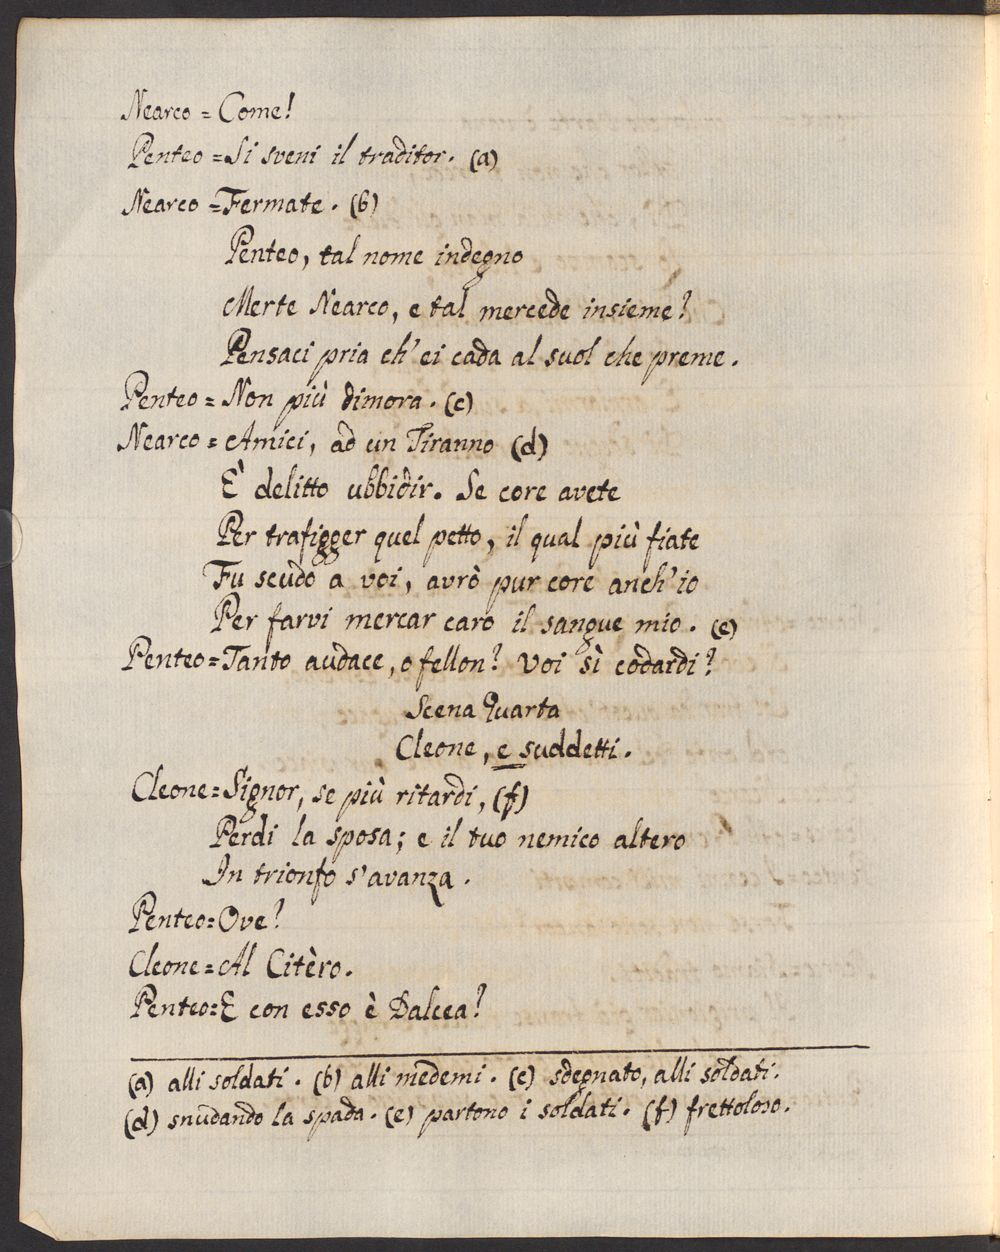 Nearco = Come!
Penteo = Si sveni il traditor. (a)
Nearco = Fermate. (b)
Penteo, tal nome indegno
Merte Nearco, e tal mercede insieme?
Pensaci pria ch'ei cada al suol che preme.
Penteo = Non più dimora. (c)
Nearco = Amici, ad un Tiranno (d)
È delitto ubbidir. Se core avete
Per trafigger quel petto, il qual più fiate
Fu scudo a voi, avrò pur core anch'io
Per farvi mercar caro il sangue mio. (e)
Penteo = Tanto audace, o fellon? Voi sì codardi?
Scena Quarta
Cleone, e suddetti.
Cleone = Signor, se più ritardi, (f)
Perdi la sposa; e il tuo nemico altero
In trionfo s'avanza.
Penteo = Ove?
Cleone = Al Citèro.
Penteo = E con esso è Dalcea?
(a) alli soldati. (b) alli medemi. (c) sdegnato, alli soldati.
(d) snudando la spada. (e) partono i soldati. (f) frettoloso.